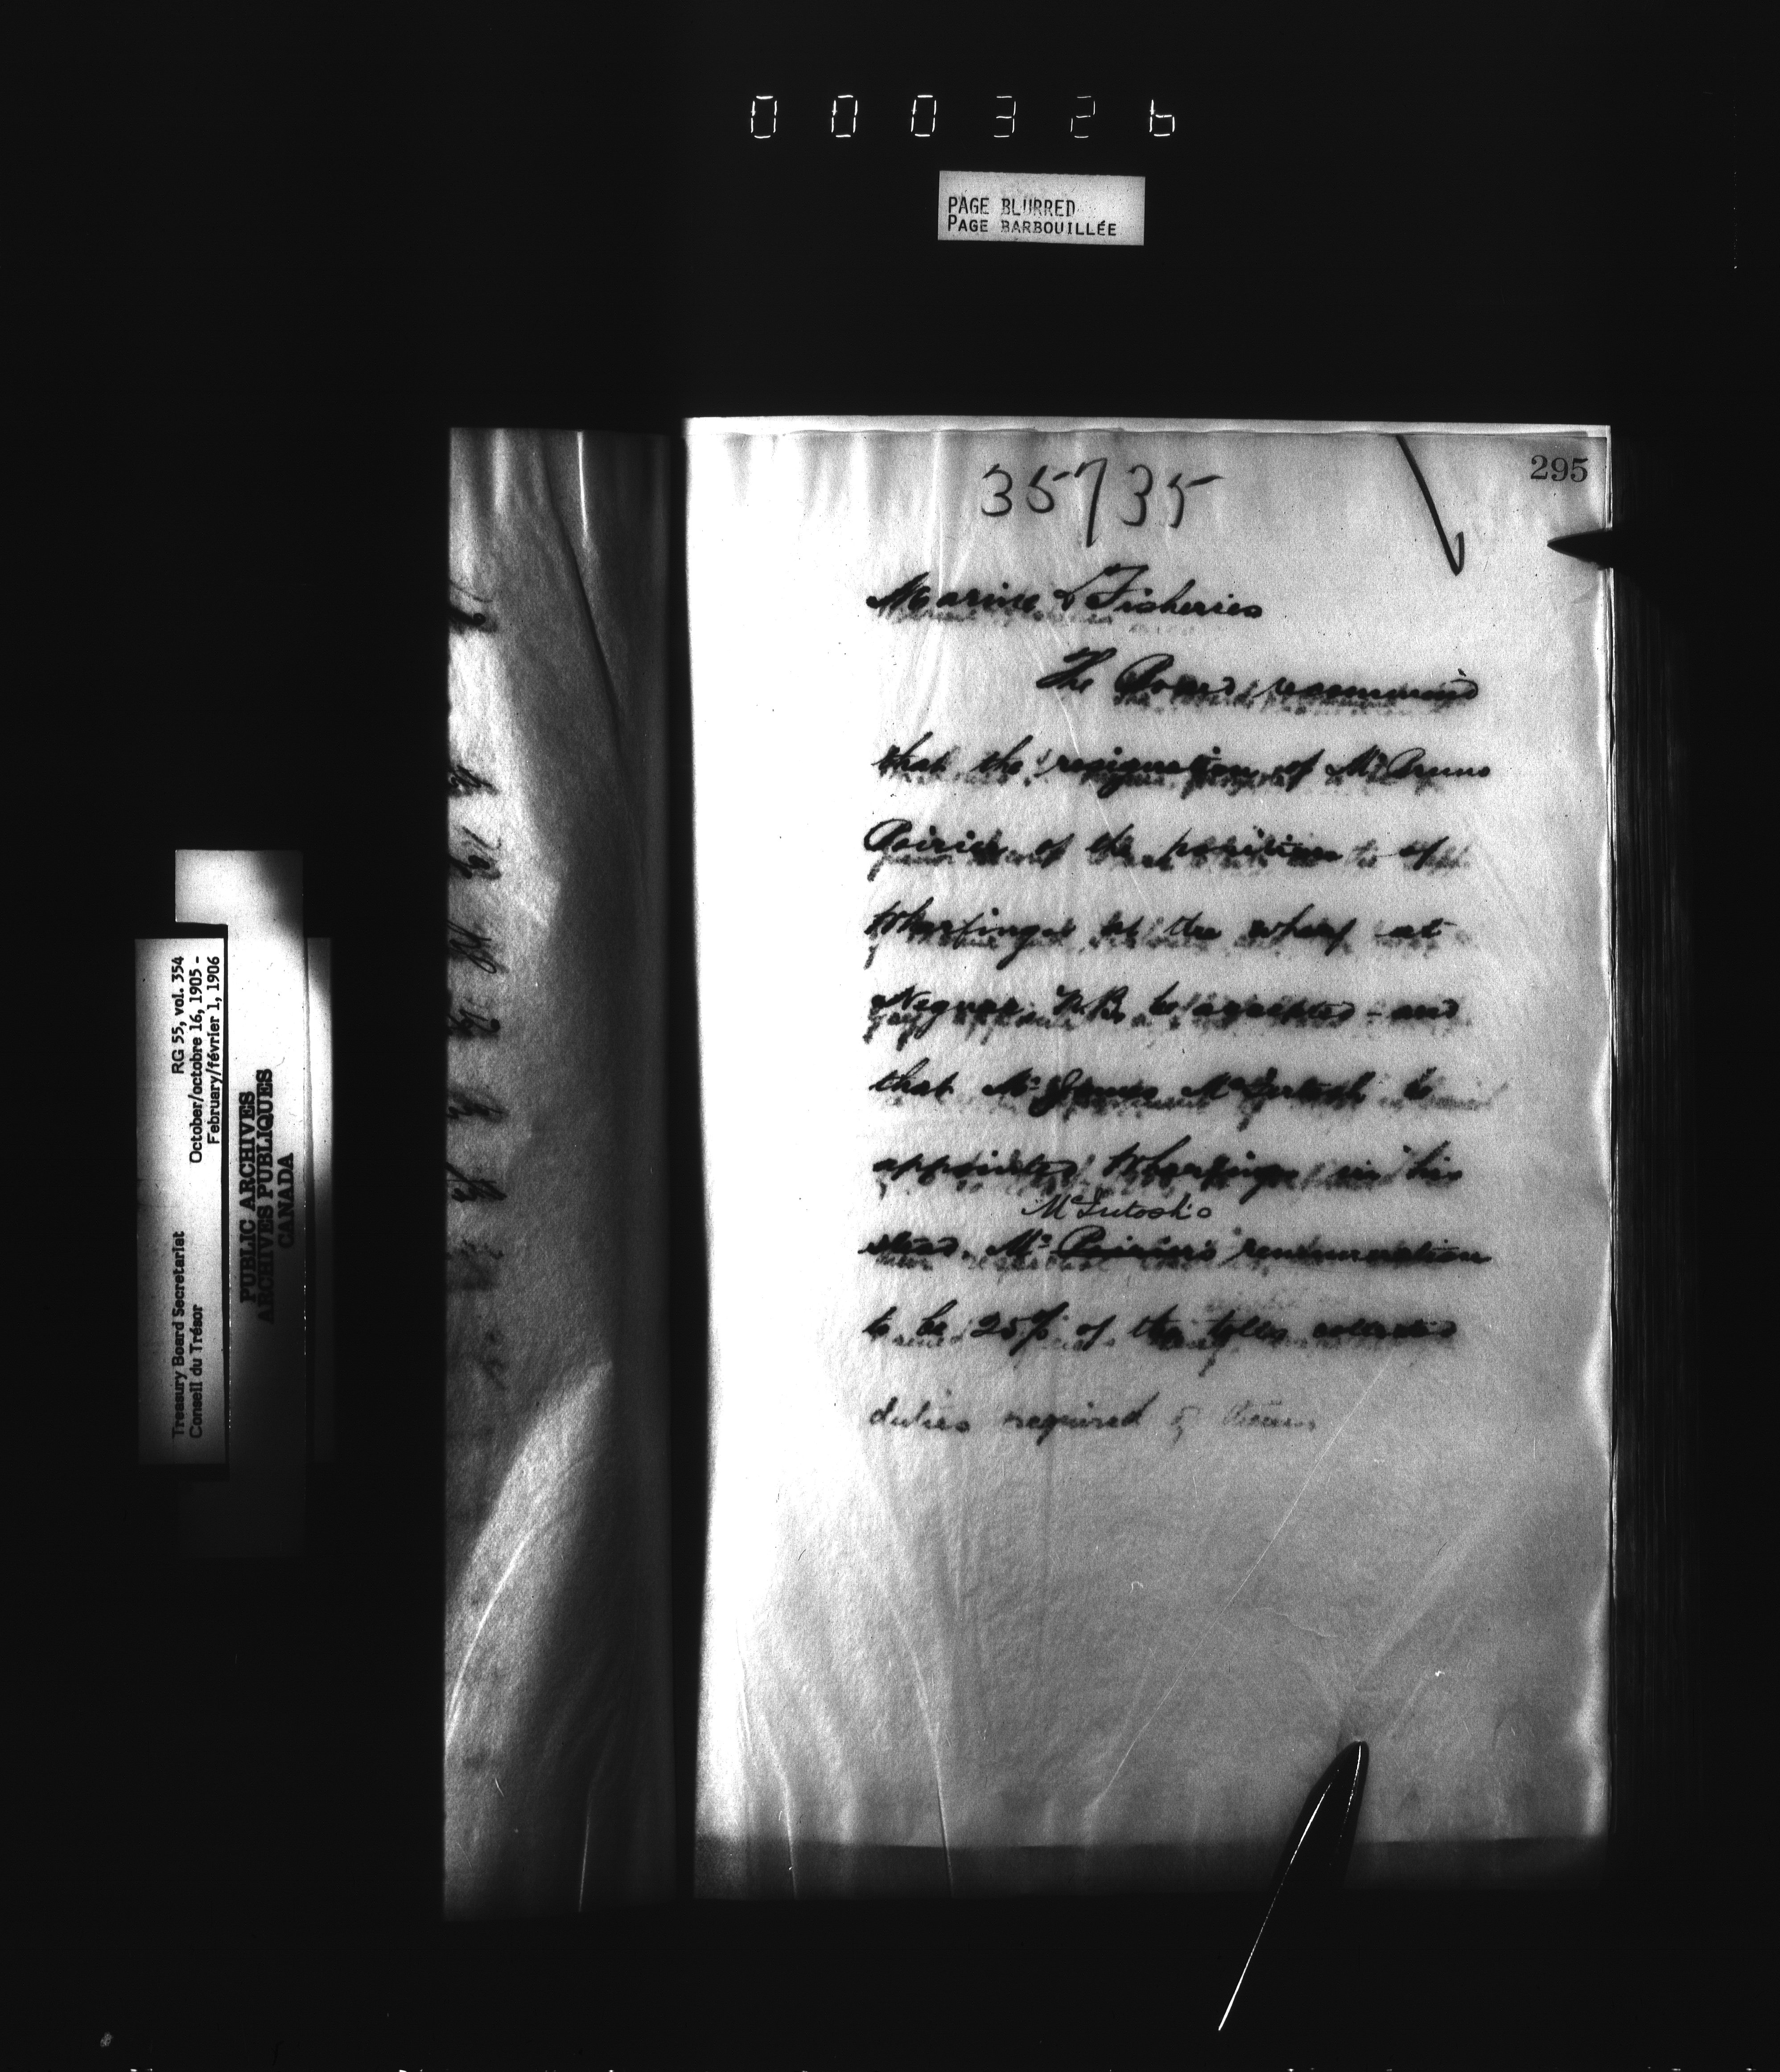 000326
PAGE BLURRED
PAGE BARBOUILLÉE
295
35735
Marine & Fisheries
The Board recommend
that the resignation of Mr Bruno
Poirier of the position of
Wharfinger at the wharf at
Neguac N.B. be accepted - and
that Mr James McIntosh be
appointed Wharfinger in his
McIntosh's
stead. Mr Poirier's renumeration
to be 25% of the tolls collected
duties required of
Treasury Board Secretariat RG 55, vol. 354
Conseil du Trésor October/octobre 16, 1905 -
February/février 1, 1906
PUBLIC ARCHIVES
ARCHIVES PUBLIQUES
CANADA